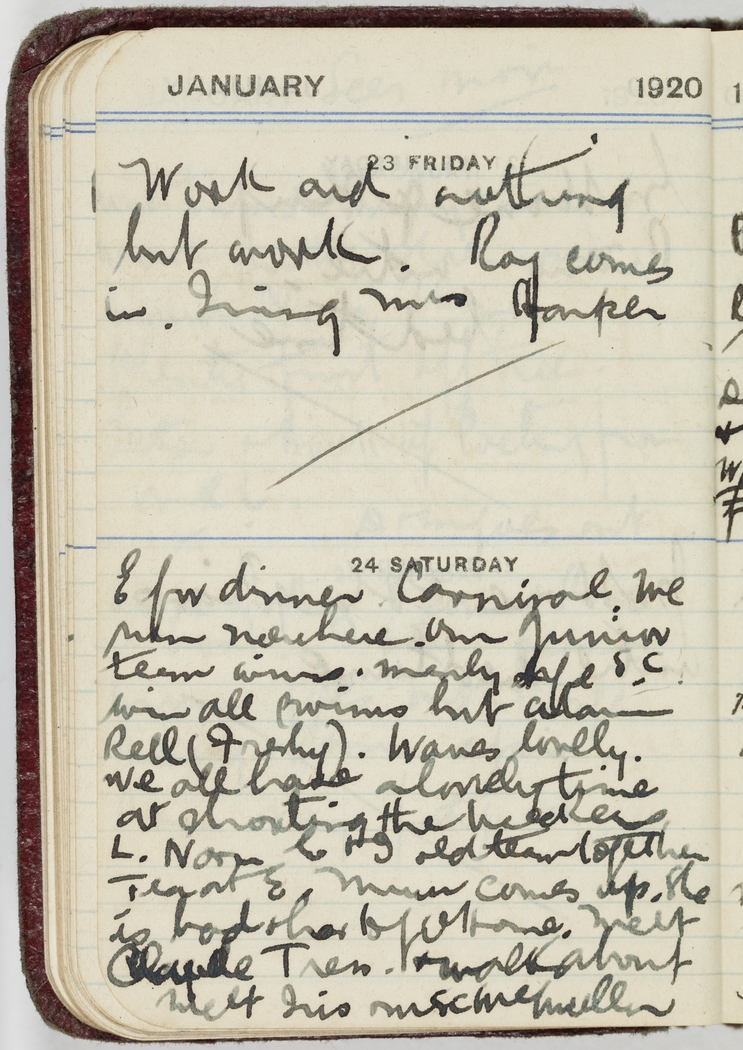 JANUARY 1920
23 FRIDAY
Work and nothing
but work. Ray comes
in. Mrs Harper
24 SATURDAY
E for dinner Carnival. We
nowhere. Our Junior
team wins. Manly S C
win all swims but
Rell (Freshy). Waves lovely.
We all have a lovely time
at shooting the breakers
L. Norm & I old team together
Tea at E. comes up. She
is bad & has to go home. Meet
Claude Tress. & walk about
meet Iris